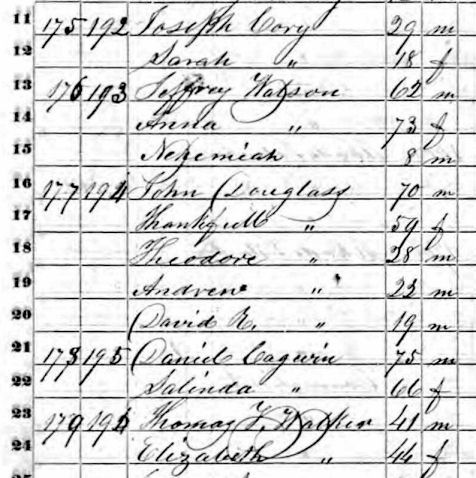 11 175 192 Joseph Cory 29 m
12 Sarah " 18 f
13 176 193 Jeffrey Watson 62 m
14 Anna " 73 f
15 Nehemiah 8 m
16 177 194 John Douglass 70 m
17 Thankfull " 59 f
18 Theodore " 28 m
19 Andrew " 23 m
20 David R. " 19 m
21 178 195 Daniel Cagwin 75 m
22 Salinda " 66 f
23 179 196 Thomas Walker 41 m
24 Elizabeth " 44 f